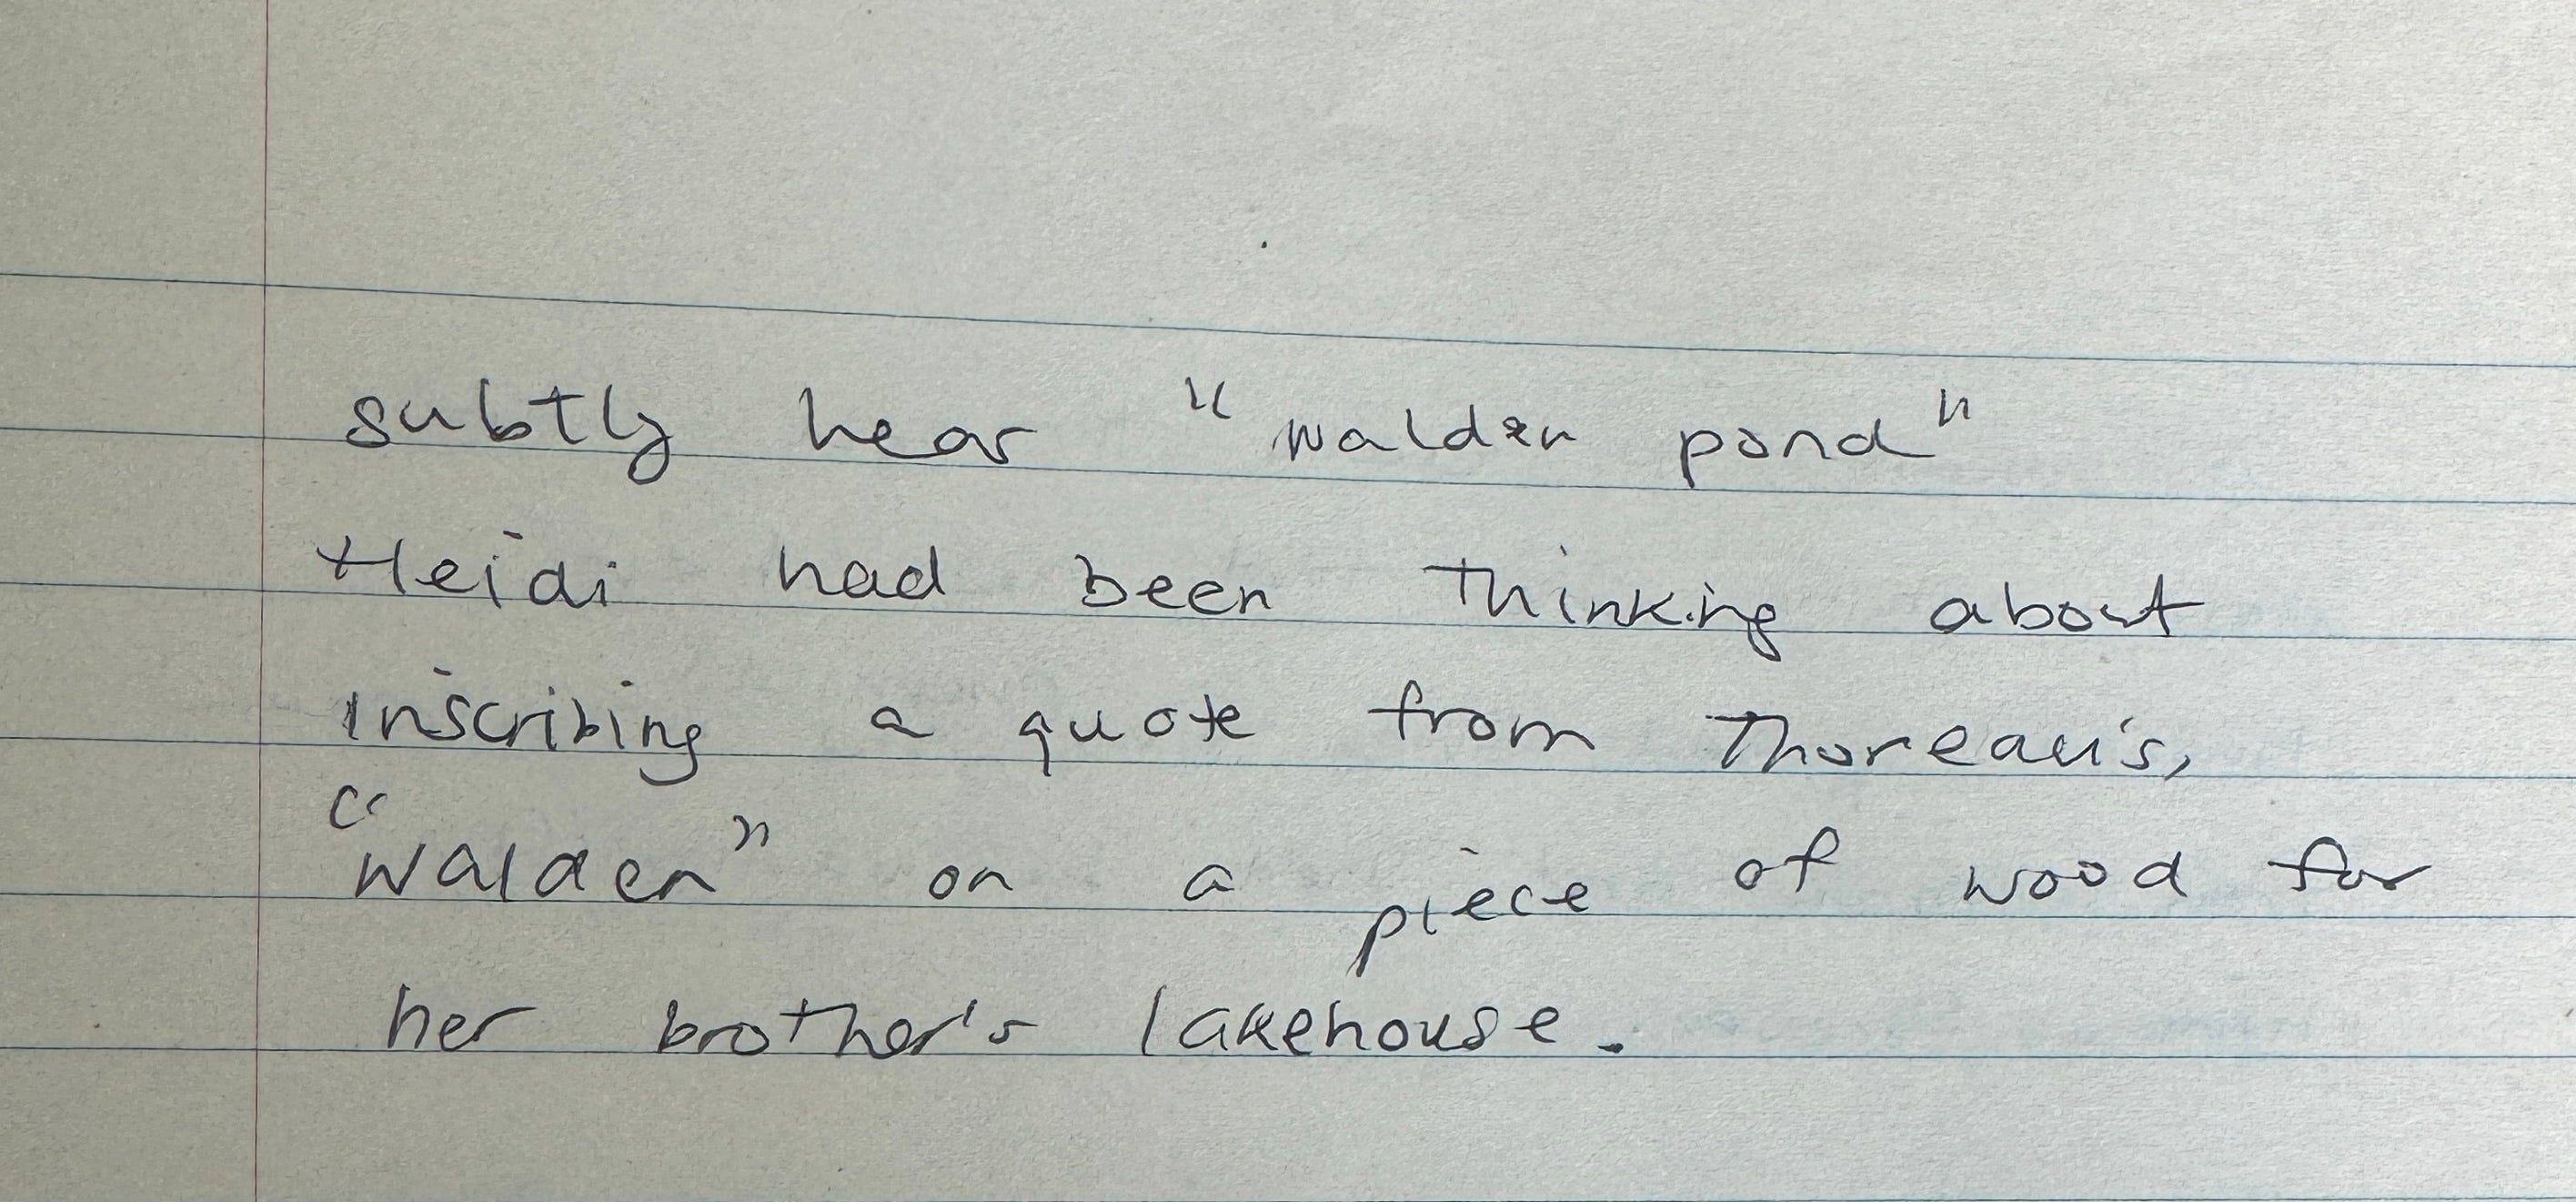 subtly hear "walden pond"
Heidi had been thinking about
inscribing a quote from Thoreau's,
"Walden" on a piece of wood for
her brother's lakehouse.